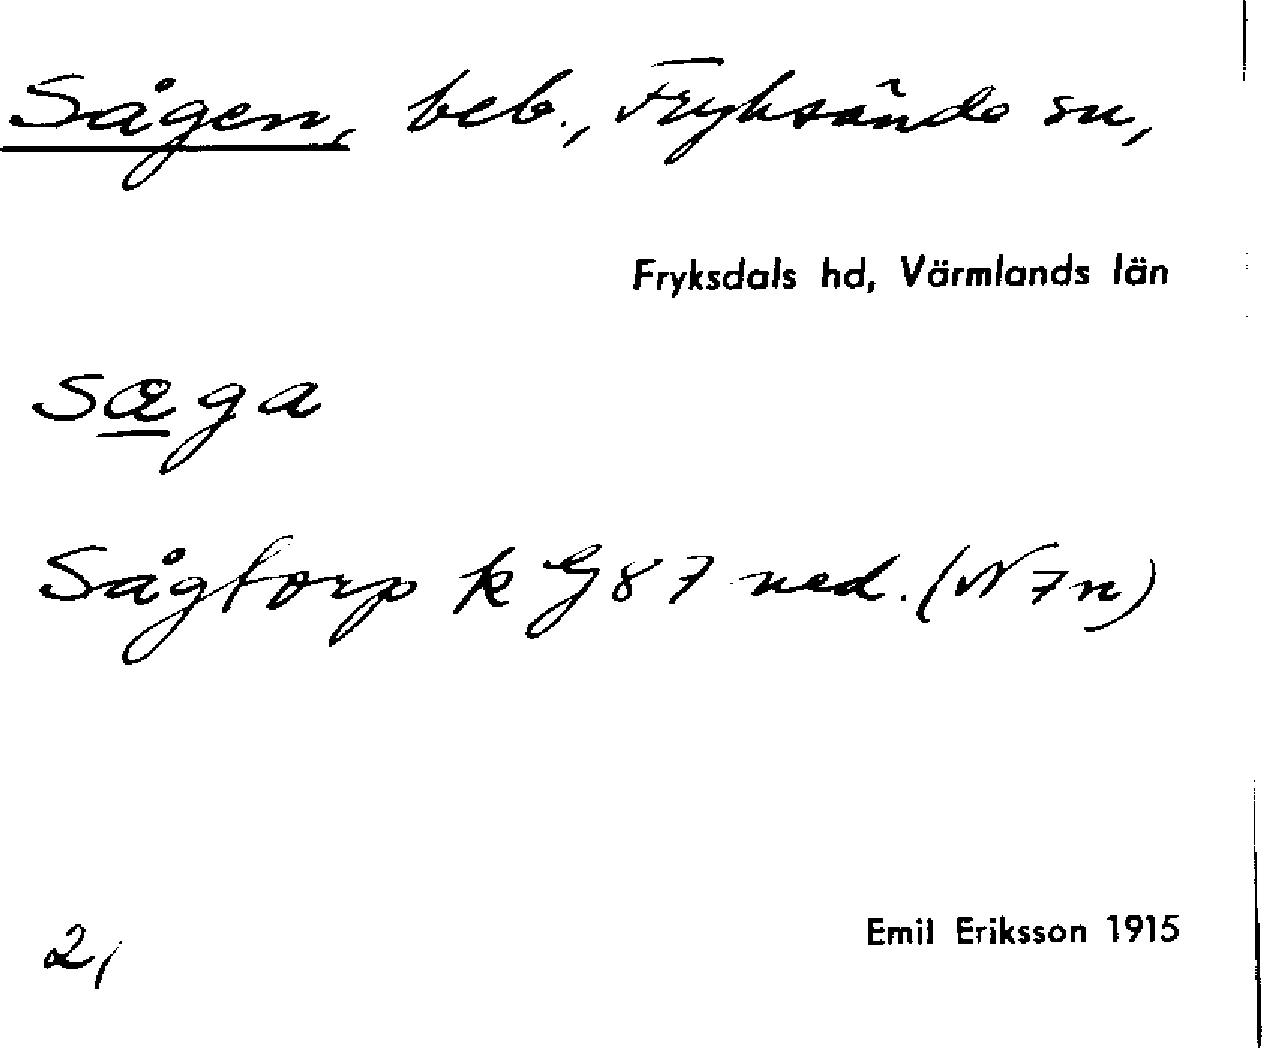 Sågen, beb., Fryksände sn,
Fryksdals hd, Värmlands län
sæga
Sågtorp k G 87 ned. (N 7n)
2,
Emil Eriksson 1915